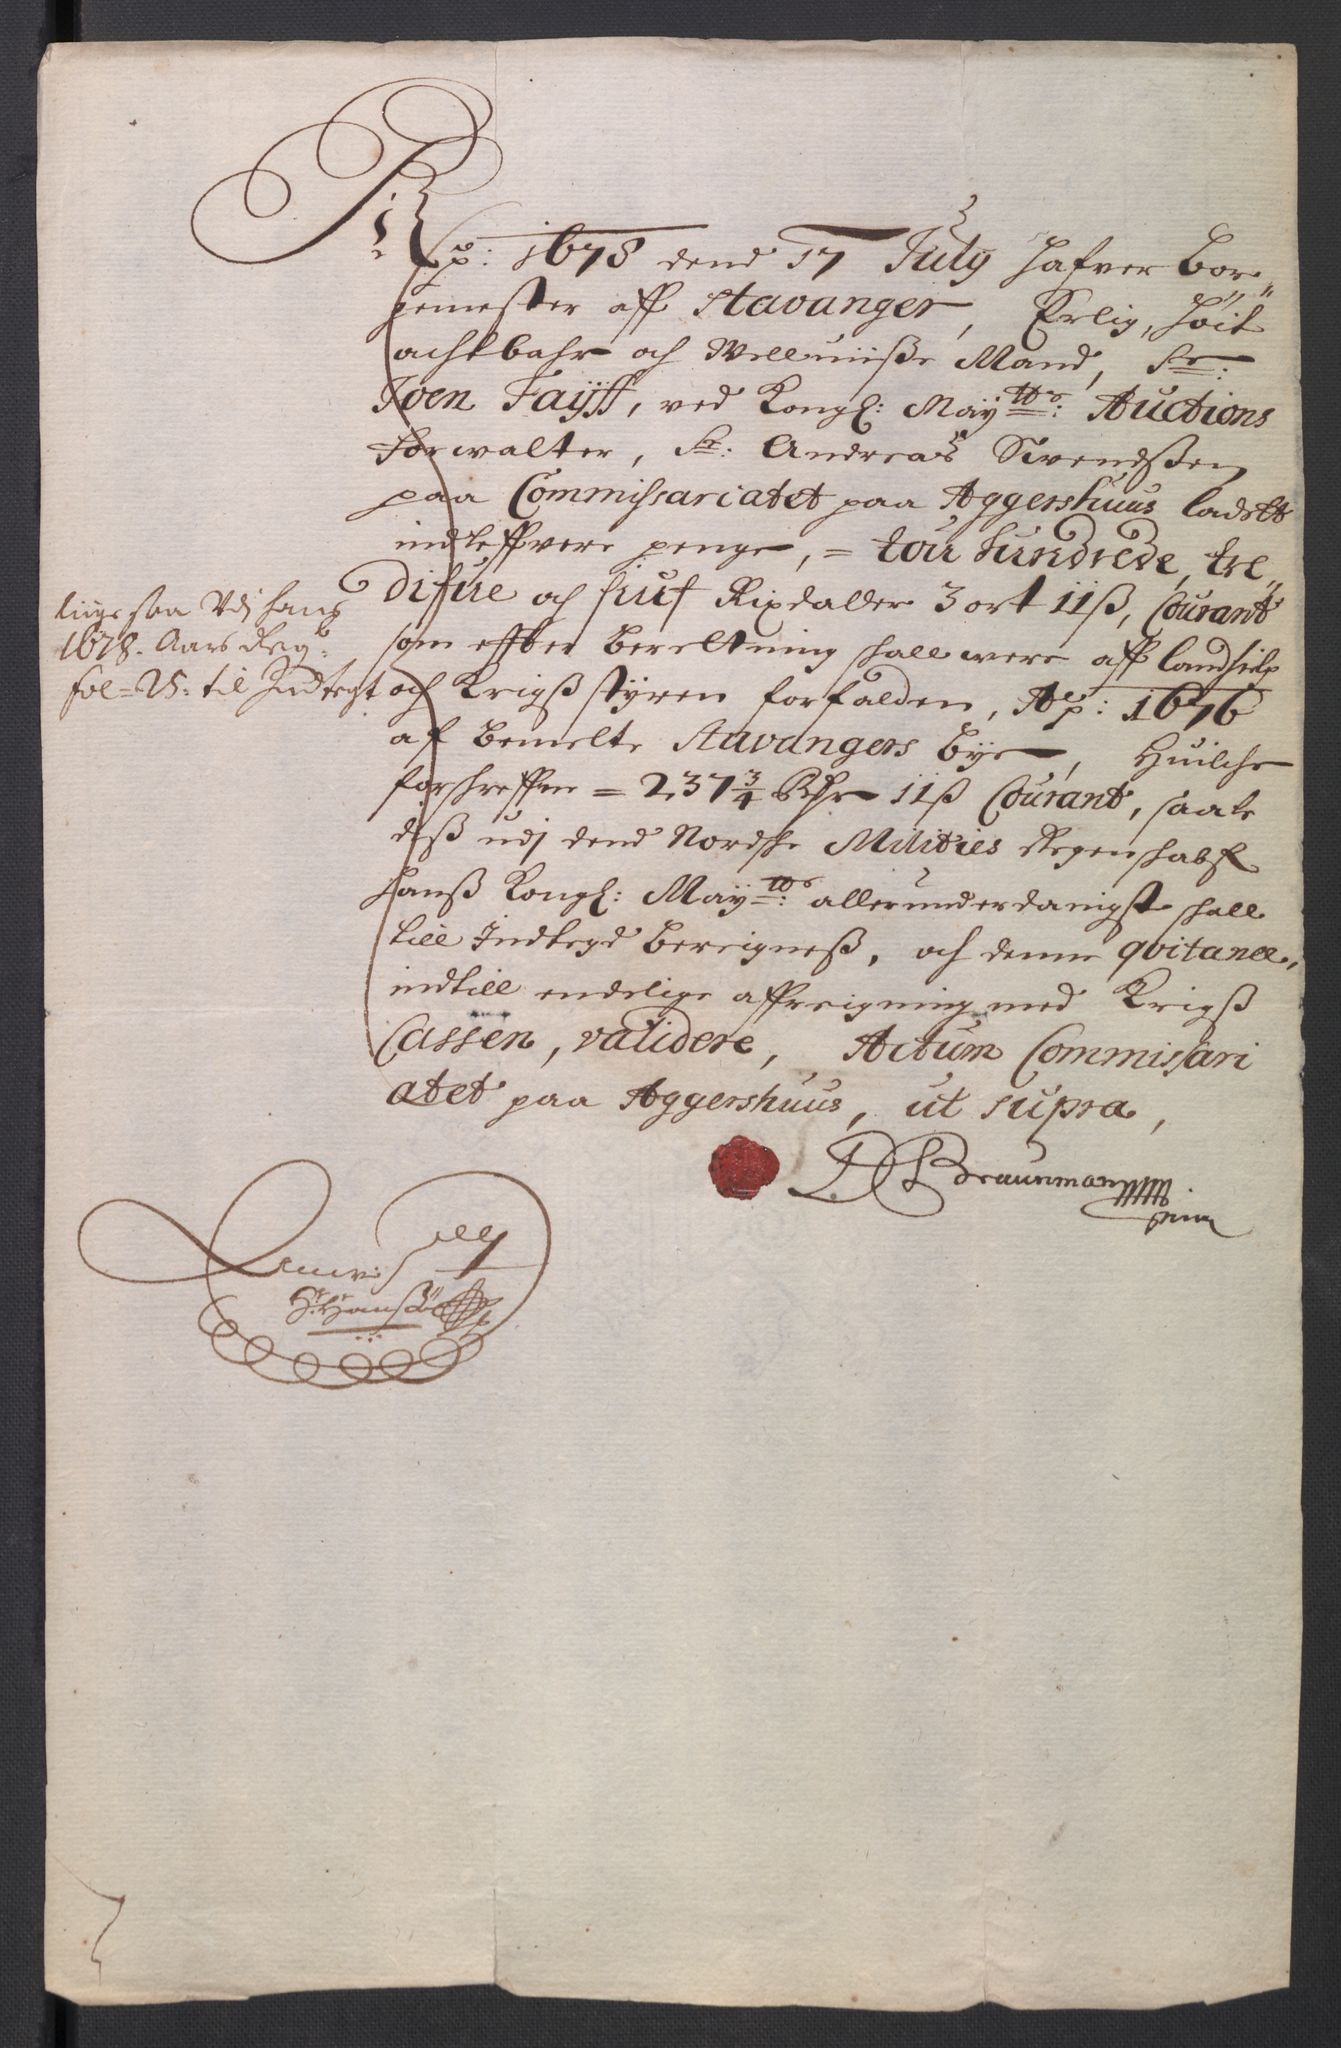 Ap: 1678 dend 17 July hafver Bor„
gemester aff Stavanger, Erlig, höit
achtbahr och Welluiiße Mand, Sr:
Joen Faÿff, ved Kongl: Maÿtts: Auctions
forwalter, Sr: Andreas Swendßen
paa Commissariatet paa Aggershuus ladett
indleffvere penge, = tou hundrede, tre„
difiue och siuf Rixdaller 3 ort 11ß, Courant
som effter beretning skall were aff landhielp
och Krigß styren forfalden, Ap: 1676
af bemelte Stavangers bye, Huilche
forskreffne = 237¾ Rdr 11ß Courant, saale
diß udj dend Nordske Milities Regenskabs
hanß Kongl: Maÿtts: allerunderdanigst skall
till Indtegd bereigneß, och denne qvitance,
indtill endelige affreigning med Krigß
Cassen, validere, Actum Commissari
atet paa Aggershuus, ut supra,
liigesaa Udj hans
1678. Aars Reg:
fol = 25: til Indtegt
Braunman